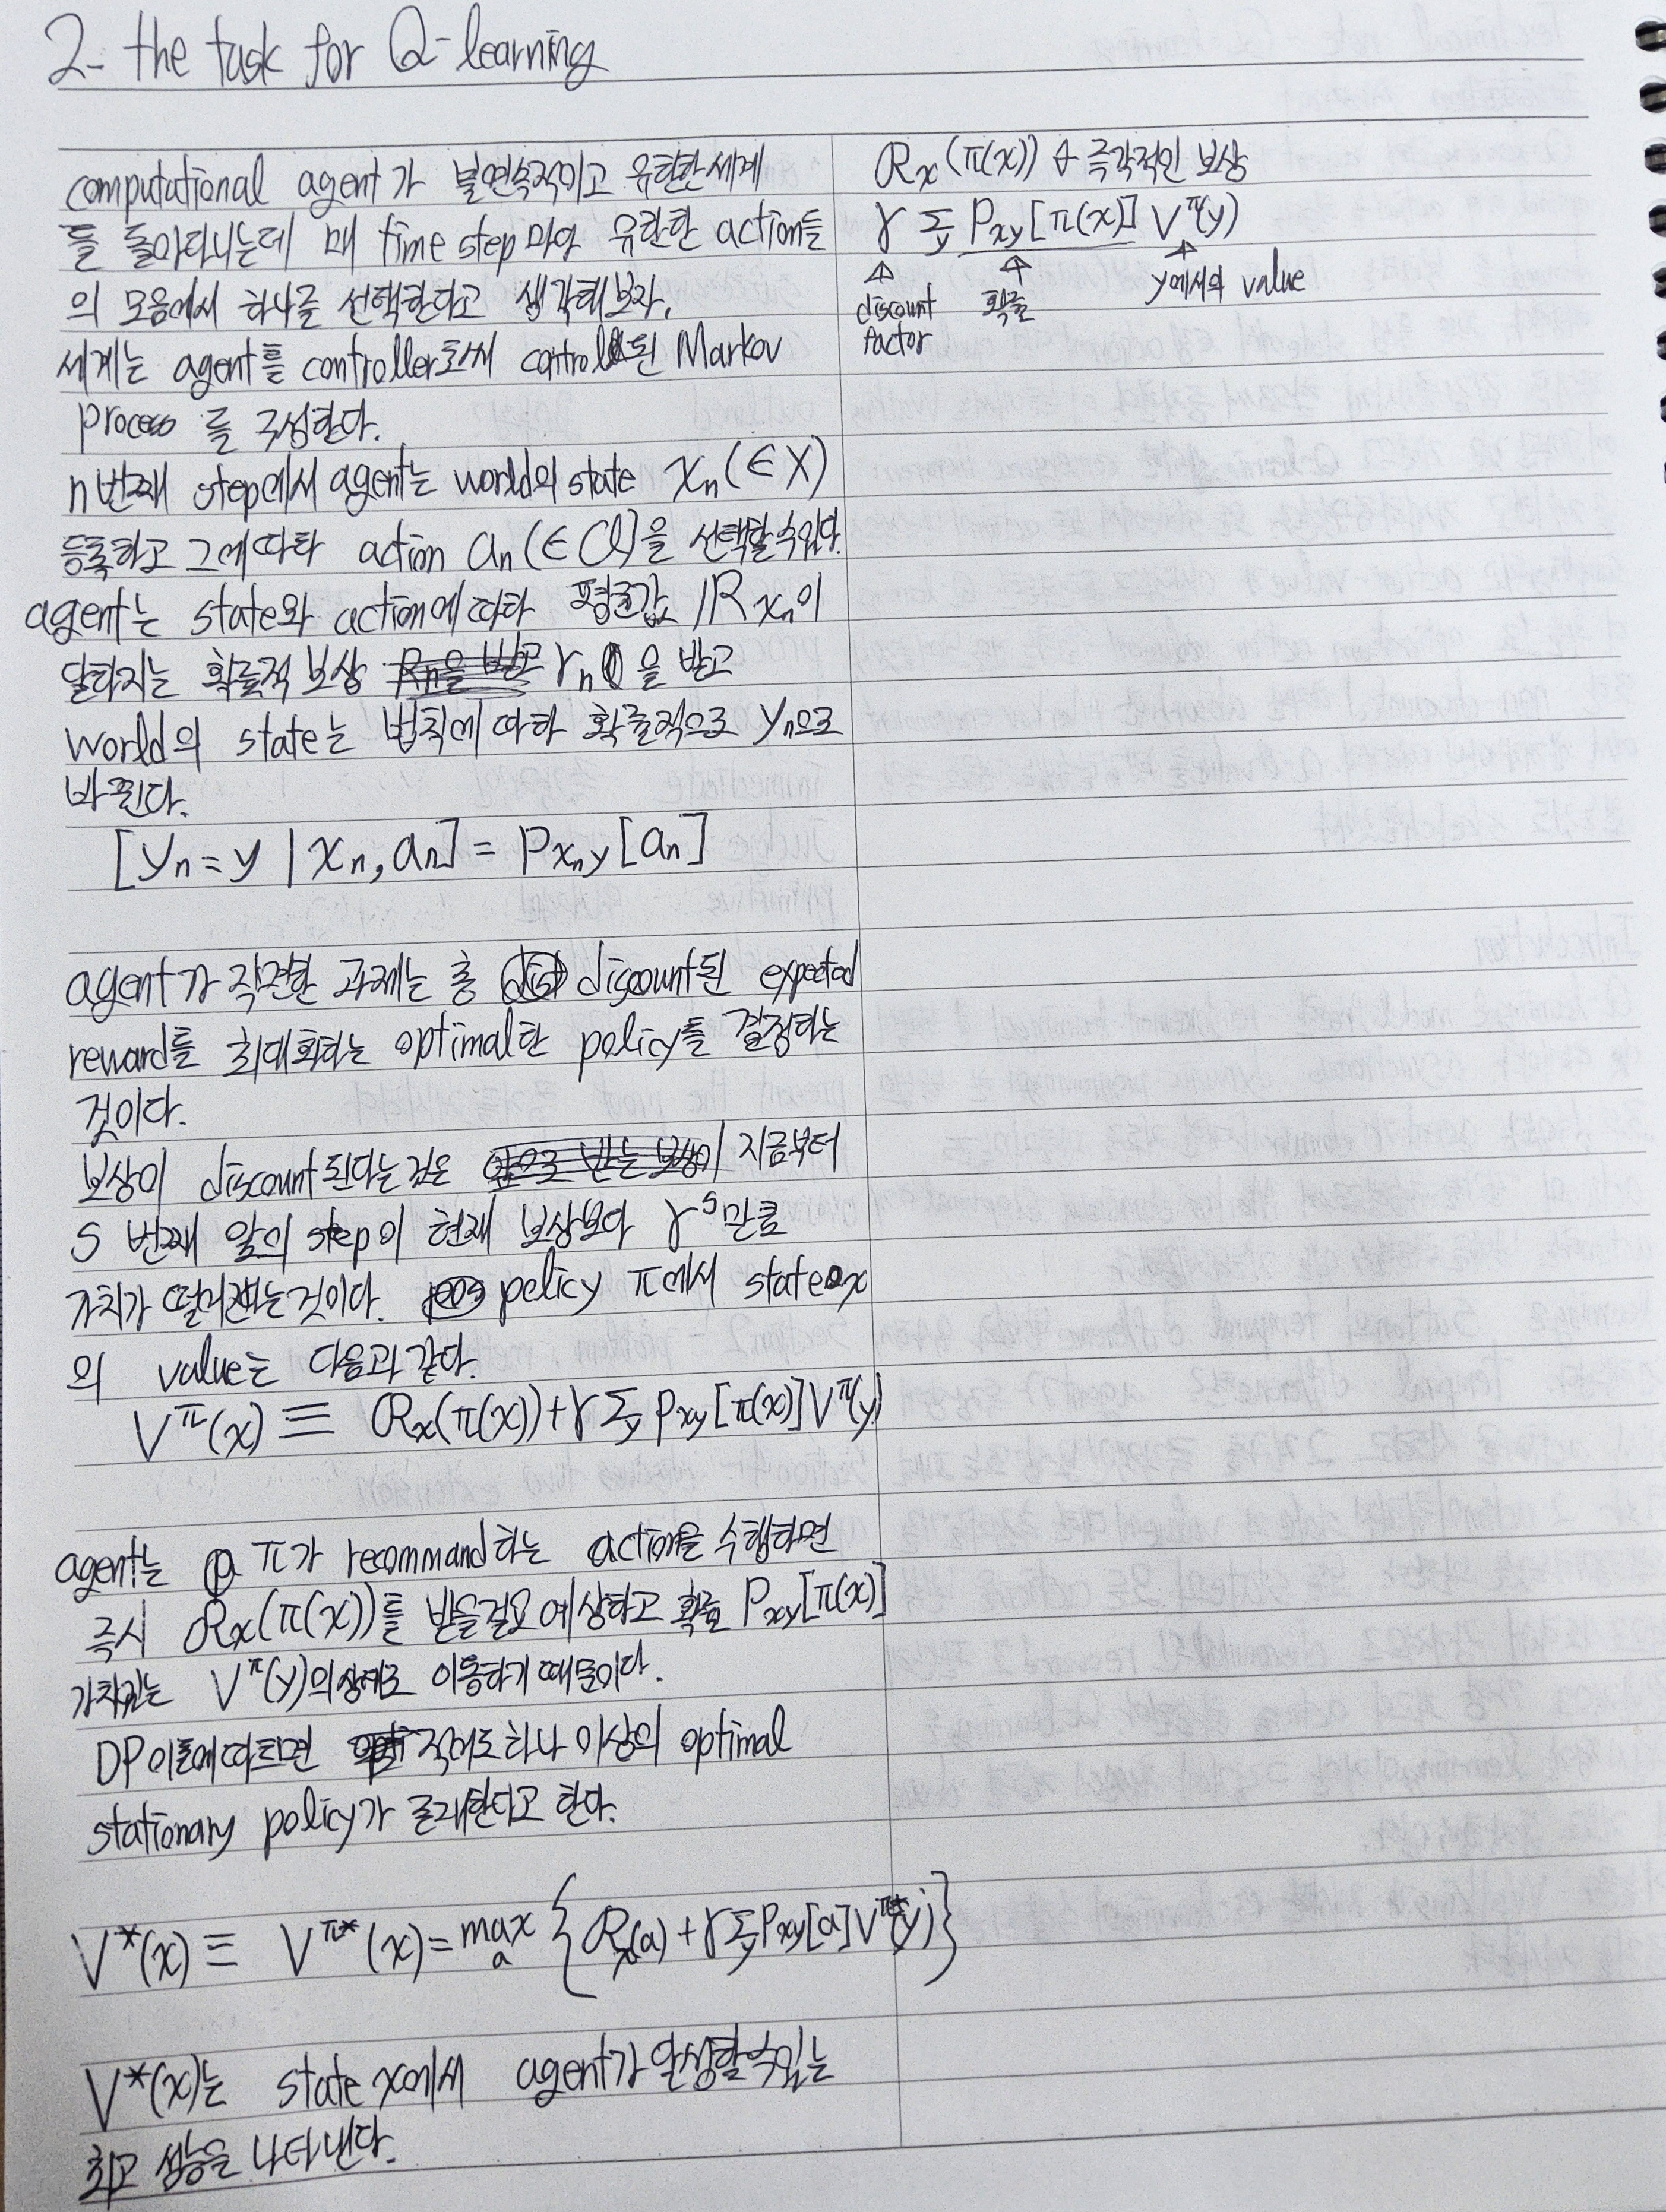 2- the task for Q-learning
computational agent가 불연속적이고 유한한 세계
를 돌아다니는데 매 time step 마다 유한한 action들
의 모음에서 하나를 선택한다고 생각해보자.
세계는 agent를 controller로써 control된 Markov
process 를 구성한다.
n번째 step에서 agent는 world의 state xₙ(∈X)
등록하고 그에따라 action aₙ(∈𝒜)을 선택할수있다.
agent는 state와 action에 따라 평균값 ℛxₙ이
달라지는 확률적 보상 rₙ을 받고
world의 state는 법칙에 따라 확률적으로 yₙ으로
바뀐다.
[yₙ=y | xₙ, aₙ] = Pxₙy[aₙ]
agent가 직면한 과제는 총 discount된 expected
reward를 최대화하는 optimal한 policy를 결정하는
것이다.
보상이 discount된다는것은 지금부터
s 번째 앞의 step이 현재 보상보다 γˢ만큼
가치가 떨어진다는것이다. policy π에서 state x
의 value는 다음과 같다.
V^π(x) ≡ ℛx(π(x))+γ Σy Pxy[π(x)]V^π(y)
agent는 π가 recommand하는 action을 수행하면
즉시 ℛx(π(x))를 받을걸요 예상하고 확률 Pxy[π(x)]
가치있는 V^π(y)의상태로 이동하기 때문이다.
DP이론에따르면 적어도 하나 이상의 optimal
stationary policy가 존재한다고 한다.
V*(x) ≡ V^π*(x) = max a {ℛx(a) + γ Σy Pxy[a]V^π*(y)}
V*(x)는 state x에서 agent가 달성할수있는
최고 성능을 나타낸다.
ℛx(π(x)) 즉각적인 보상
γ Σy Pxy[π(x)] V^π(y)
discount factor
확률
y에서의 value